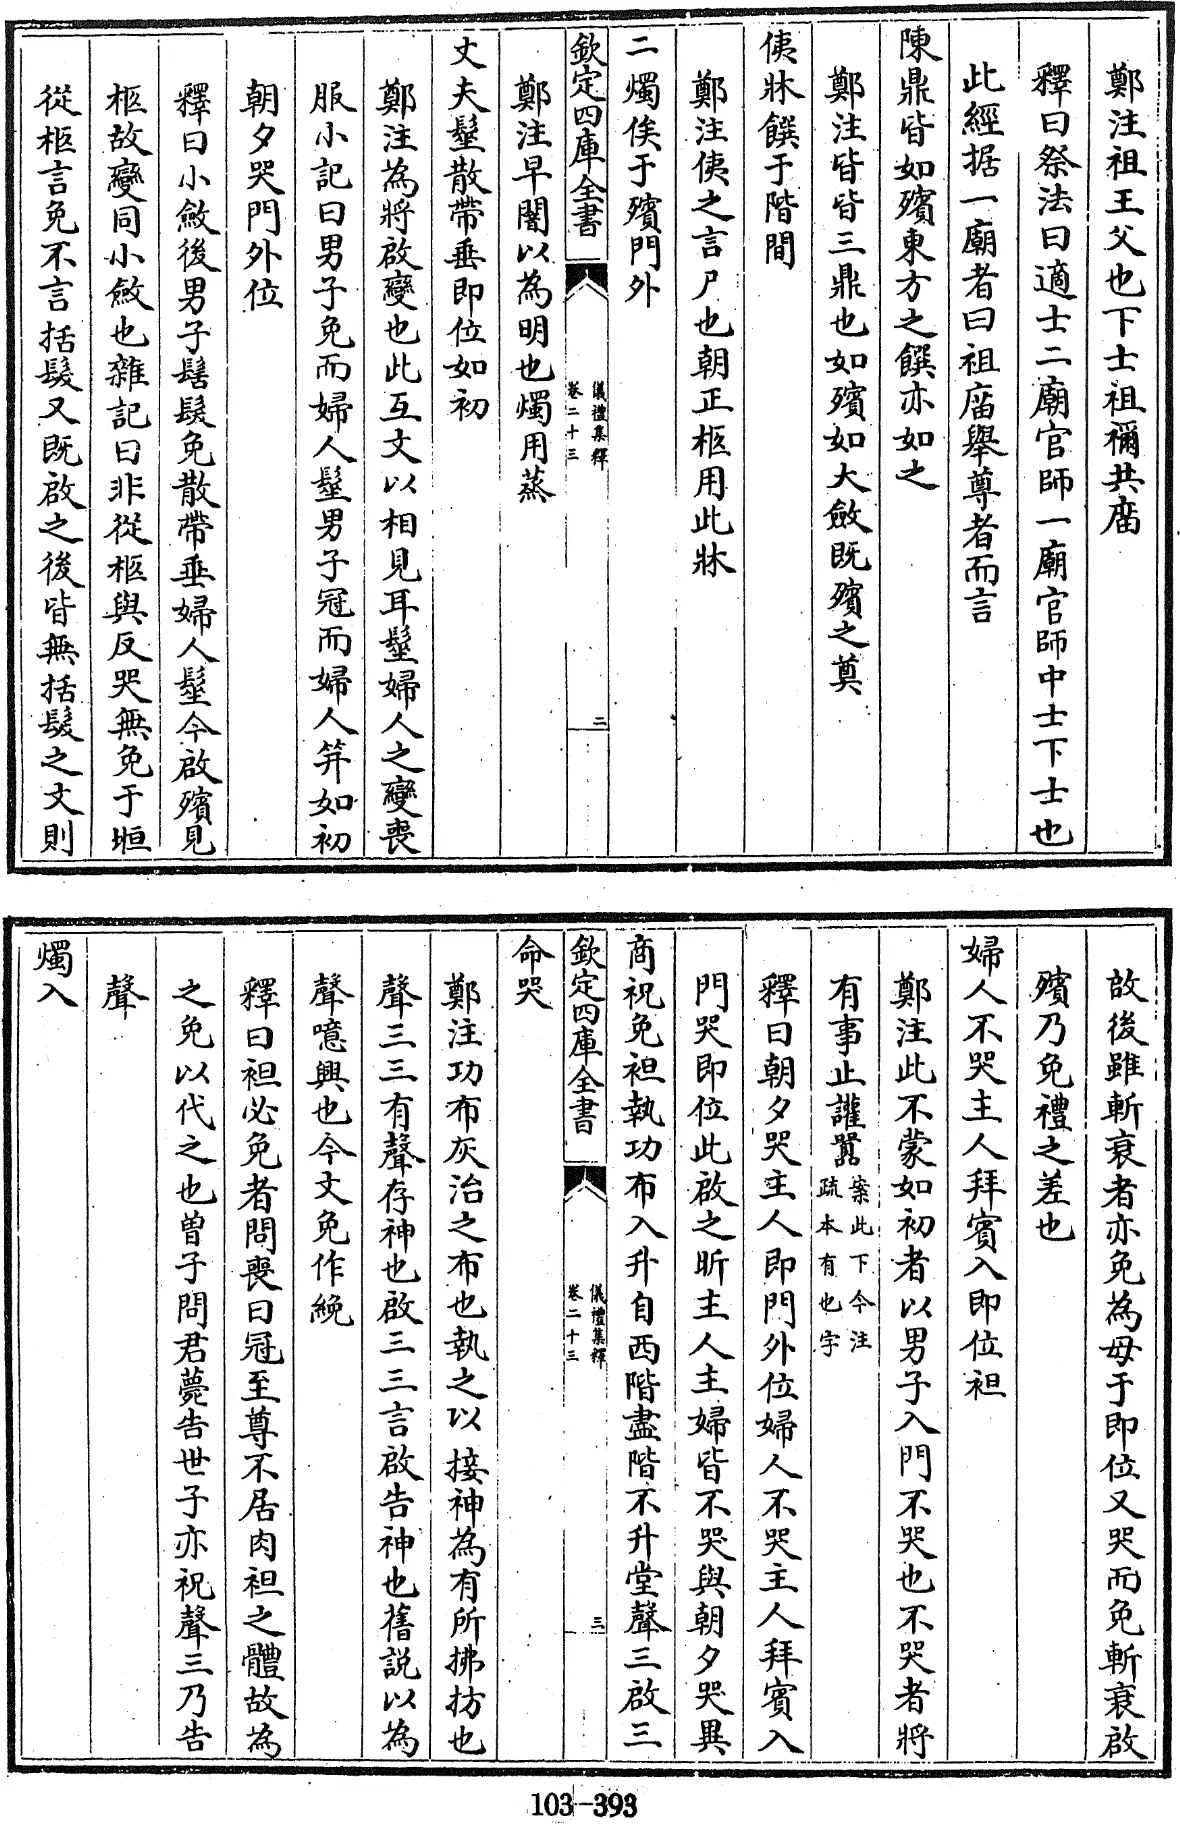 鄭注祖王父也下士祖禰共庿
釋曰祭法曰適士二廟官師一廟官師中士下士也
此經据一廟者曰祖庿舉尊者而言
陳鼎皆如殯東方之饌亦如之
鄭注皆皆三鼎也如殯如大斂既殯之奠
侇牀饌于階間
鄭注侇之言尸也朝正柩用此牀
二燭俟于殯門外
欽定四庫全書
儀禮集釋
卷二十三
二
鄭注早闇以為明也燭用蒸
丈夫髽散帶垂即位如初
鄭注為將啟變也此互文以相見耳髽婦人之變喪
服小記曰男子免而婦人髽男子冠而婦人笄如初
朝夕哭門外位
釋曰小斂後男子髺髮免散帶垂婦人髽今啟殯見
柩故變同小斂也雜記曰非從柩與反哭無免于堩
從柩言免不言括髮又既啟之後皆無括髮之文則
啟後雖斬衰者亦免為母于即位又哭而免斬衰啟
殯乃免禮之差也
婦人不哭主人拜賓入即位袒
鄭注此不蒙如初者以男子入門不哭也不哭者將
有事止讙嚻案此下今注疏本有也字
釋曰朝夕哭主人即門外位婦人不哭主人拜賓入
門哭即位此啟之昕主人主婦皆不哭與朝夕哭異
商祝免袒執功布入升自西階盡階不升堂聲三啟三
欽定四庫全書
儀禮集釋
卷二十三
三
命哭
鄭注功布灰治之布也執之以接神為有所拂扐也
聲三三有聲存神也啟三三言啟告神也舊説以為
聲噫興也今文免作絻
釋曰袒必免者問喪曰冠至尊不居肉袒之體故為
之免以代之也曽子問君薨告世子亦祝聲三乃告
聲
燭入
103-393